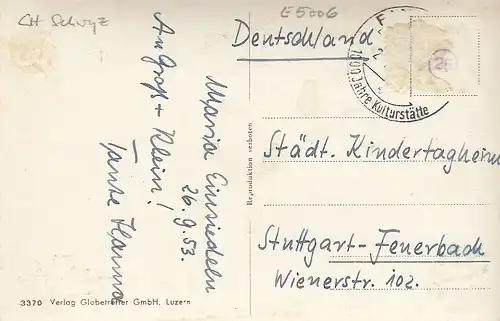 CH Schwyz
E 5006
Deutschland
1000 Jahre Kulturstätte
Maria Einsiedeln
26.9.53.
An Groß + Klein!
Tante Hanna
Reproduktion verboten
Städt. Kindertagheim
Stuttgart-Feuerbach
Wienerstr. 102.
3370 Verlag Globetrotter GmbH, Luzern